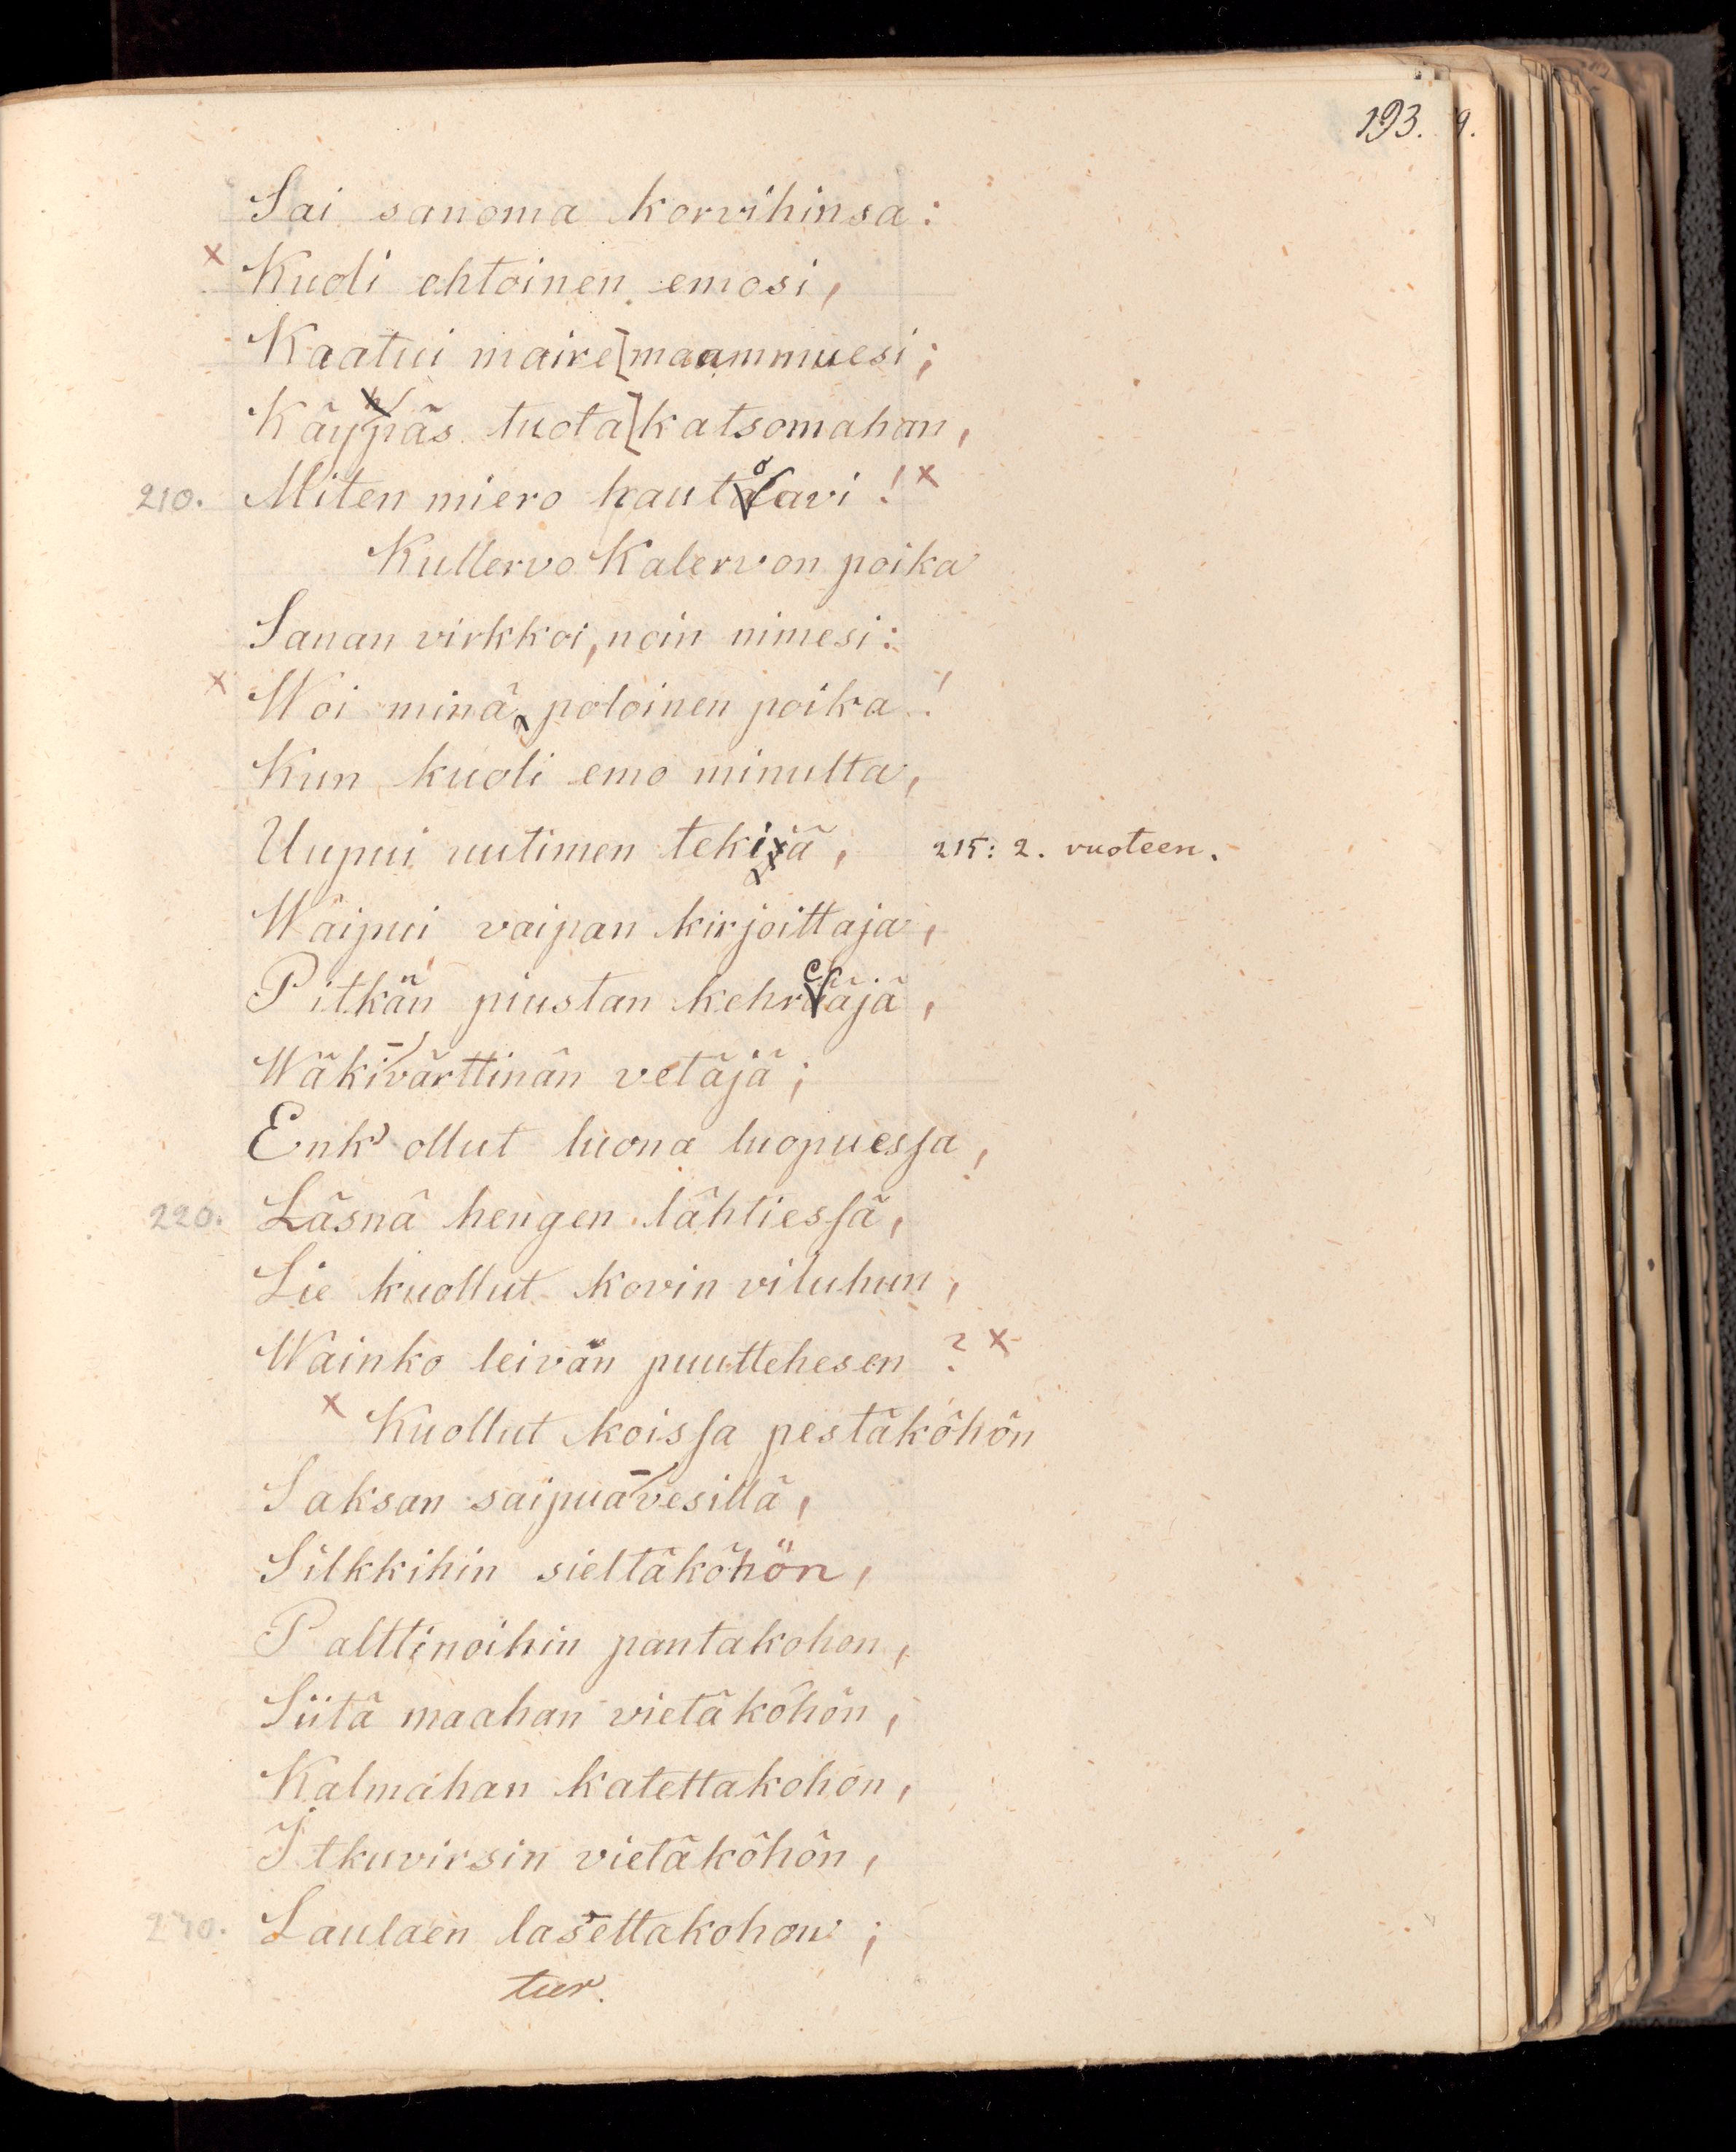 193. 9.
Sai sanoma korvihinsa:
x Kuoli ehtoinen emosi,
Kaatui maire[maammuesi;
Käypäs tuota]katsomahan,
210. Miten miero hautoavi! x
Kullervo Kalervon poika
Sanan virkkoi, noin nimesi:
x Woi minä poloinen poika!
Kun kuoli emo minulta,
Uupui uutimen tekiä, 215: 2. vuoteen.
Wäipui vaipan kirjoittaja,
Pitkän piustan kehreäjä,
Wäki-värttinän vetäjä;
Enk' ollut luona luopuessa,
220. Läsnä hengen lähtiessä,
Lie kuollut kovin viluhun,
Wainko leivän puuttehesen? x
x Kuollut koissa pestäköhön
Saksan saipua-vesillä,
Silkkihin sieltäköhön,
Palttinoihin pantakohon,
Siitä maahan vietäköhön,
Kalmahan katettakohon,
Itkuvirsin vietäköhön,
230. Laulaen lasettakohon;
tur.